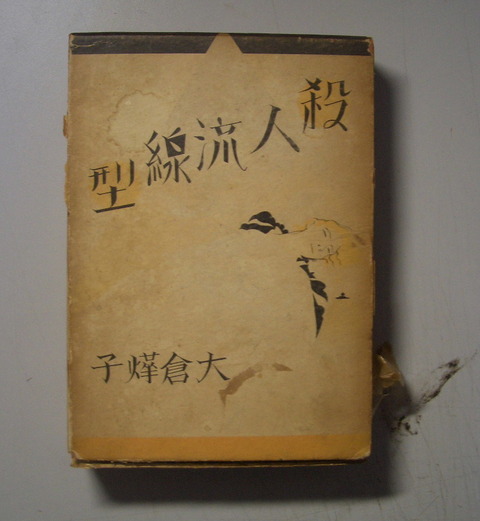 殺人流線型
大倉燁子